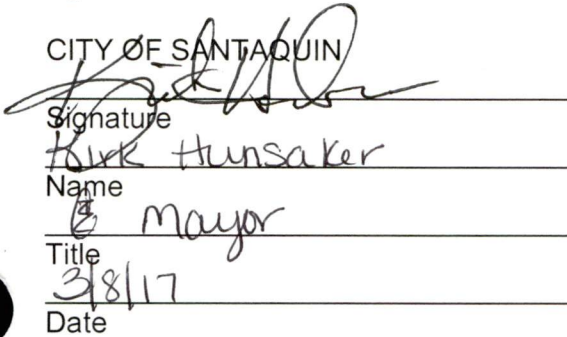 CITY OF SANTAQUIN
Signature
Kirk Hunsaker
Name
Mayor
Title
3/8/17
Date